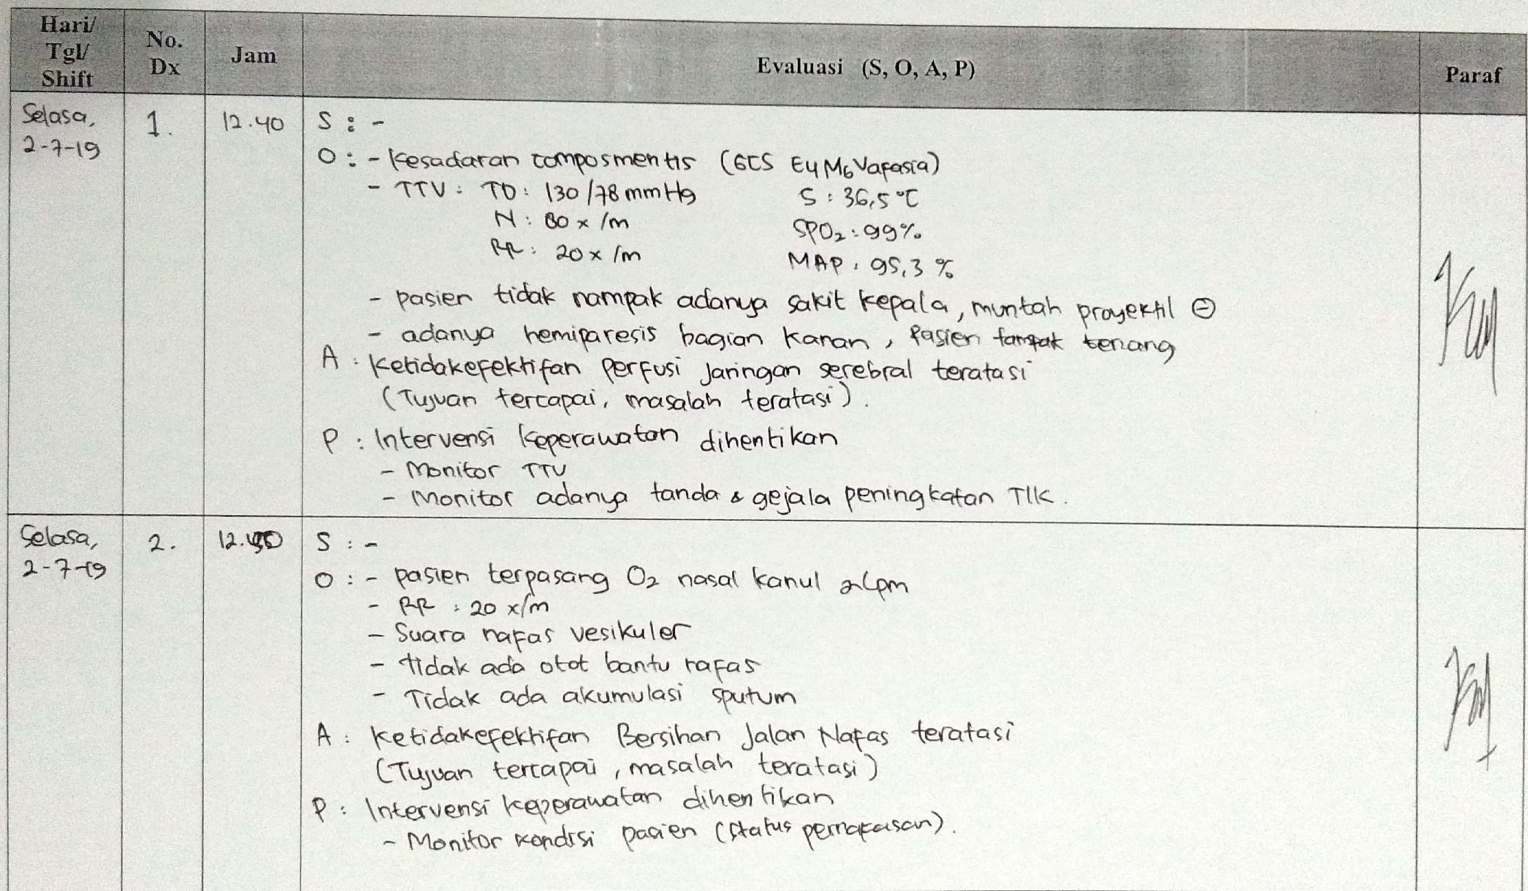 Hari/ Tgl/ Shift
No. Dx
Jam
Evaluasi (S, O, A, P)
Paraf
Selasa, 2-7-19
1.
12.40
S : -
O : - Kesadaran composmentis (GCS E4 M6 Vafasia)
- TTV : TD : 130/78 mmHg S : 36,5 °C
N : 80 x /m SPO2 : 99%
RR : 20 x /m MAP : 95,3 %
- pasien tidak nampak adanya sakit kepala, muntah proyektil ⊖
- adanya hemiparesis bagian kanan, pasien tampak tenang
A : Ketidakefektifan Perfusi Jaringan serebral teratasi
(Tujuan tercapai, masalah teratasi).
P : Intervensi keperawatan dihentikan
- Monitor TTV
- Monitor adanya tanda & gejala peningkatan TIK.
Selasa, 2-7-19
2.
S : -
O : - pasien terpasang O2 nasal kanul 2 lpm
- RR : 20 x/m
- Suara nafas vesikuler
- tidak ada otot bantu nafas
- Tidak ada akumulasi sputum
A : Ketidakefektifan Bersihan Jalan Nafas teratasi
(Tujuan tercapai, masalah teratasi)
P : Intervensi keperawatan dihentikan
- Monitor kondisi pasien (status pernafasan).